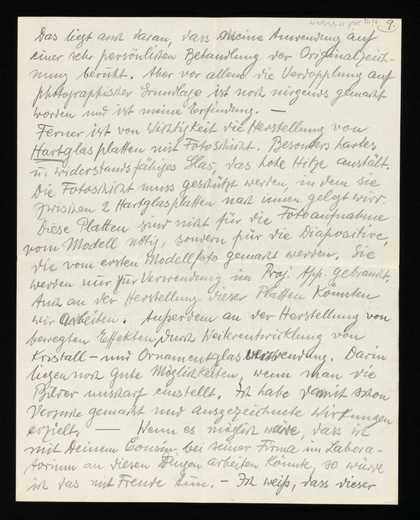 9.
Das liegt auch daran, dass meine Anwendung auf
einer sehr persönlichen Behandlung der Originalzeich-
nung beruht. Aber vor allem die Verdopplung auf
photographischer Grundlage ist noch nirgends gemacht
worden und ist meine Erfindung. —
Ferner ist von Wichtigkeit die Herstellung von
Hartglasplatten mit Fotoschicht. Besonders hartes
u. widerstandsfähiges Glas, das hohe Hitze aushält.
Die Fotoschicht muss geschützt werden, in dem sie
zwischen 2 Hartglasplatten nach innen gelegt wird.
Diese Platten sind nicht für die Fotoaufnahme
vom Modell nötig, sondern für die Diapositive,
die vom ersten Modellfoto gemacht werden. Sie
werden nur zur Verwendung im Proj. App. gebraucht.
Auch an der Herstellung dieser Platten könnten
wir arbeiten. Außerdem an der Herstellung von
bewegten Effekten, durch Weiterentwicklung von
Kristall- und Ornamentglas. Darin
liegen noch gute Möglichkeiten, wenn man die
Bilder unscharf einstellt. Ich habe damit schon
Versuche gemacht und ausgezeichnete Wirkungen
erzielt. — Wenn es möglich wäre, dass ich
mit Deinem Cousin bei seiner Firma im Labora-
torium an diesen Dingen arbeiten könnte, so würde
ich das mit Freude tun. — Ich weiß, dass dieser